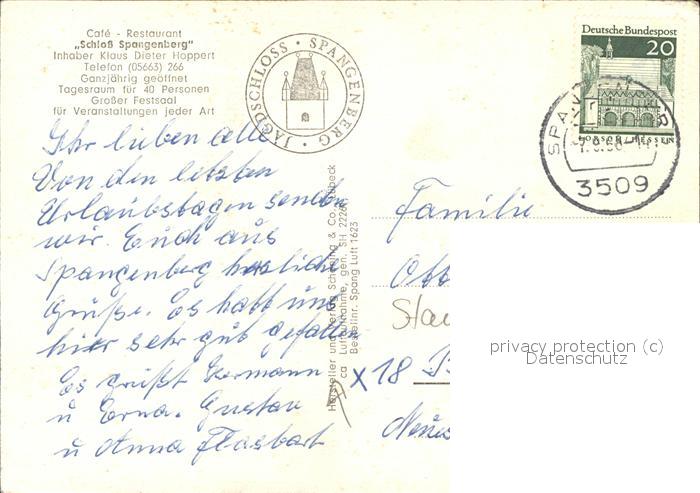 Café - Restaurant
„Schloß Spangenberg"
Inhaber Klaus Dieter Hoppert
Telefon (05663) 266
Ganzjährig geöffnet
Tagesraum für 40 Personen
Großer Festsaal
für Veranstaltungen jeder Art
JAGDSCHLOSS · SPANGENBERG ·
Deutsche Bundespost
20
LORSCH/HESSEN
3509
Ihr lieben alle
Von den letzten
Urlaubstagen senden
wir Euch aus
Spangenberg herzliche
Grüße. Es hatt uns
hier sehr gut gefallen
Es grüßt Hermann
u Erna. Gustav
u Anna Flasbart
Hersteller und Verlag Schöning & Co., Lübeck
ca Luftaufnahme, gen. SH
Bestellnr. Spang Luft 1623
Familie
Ott
x 18
privacy protection (c)
Datenschutz